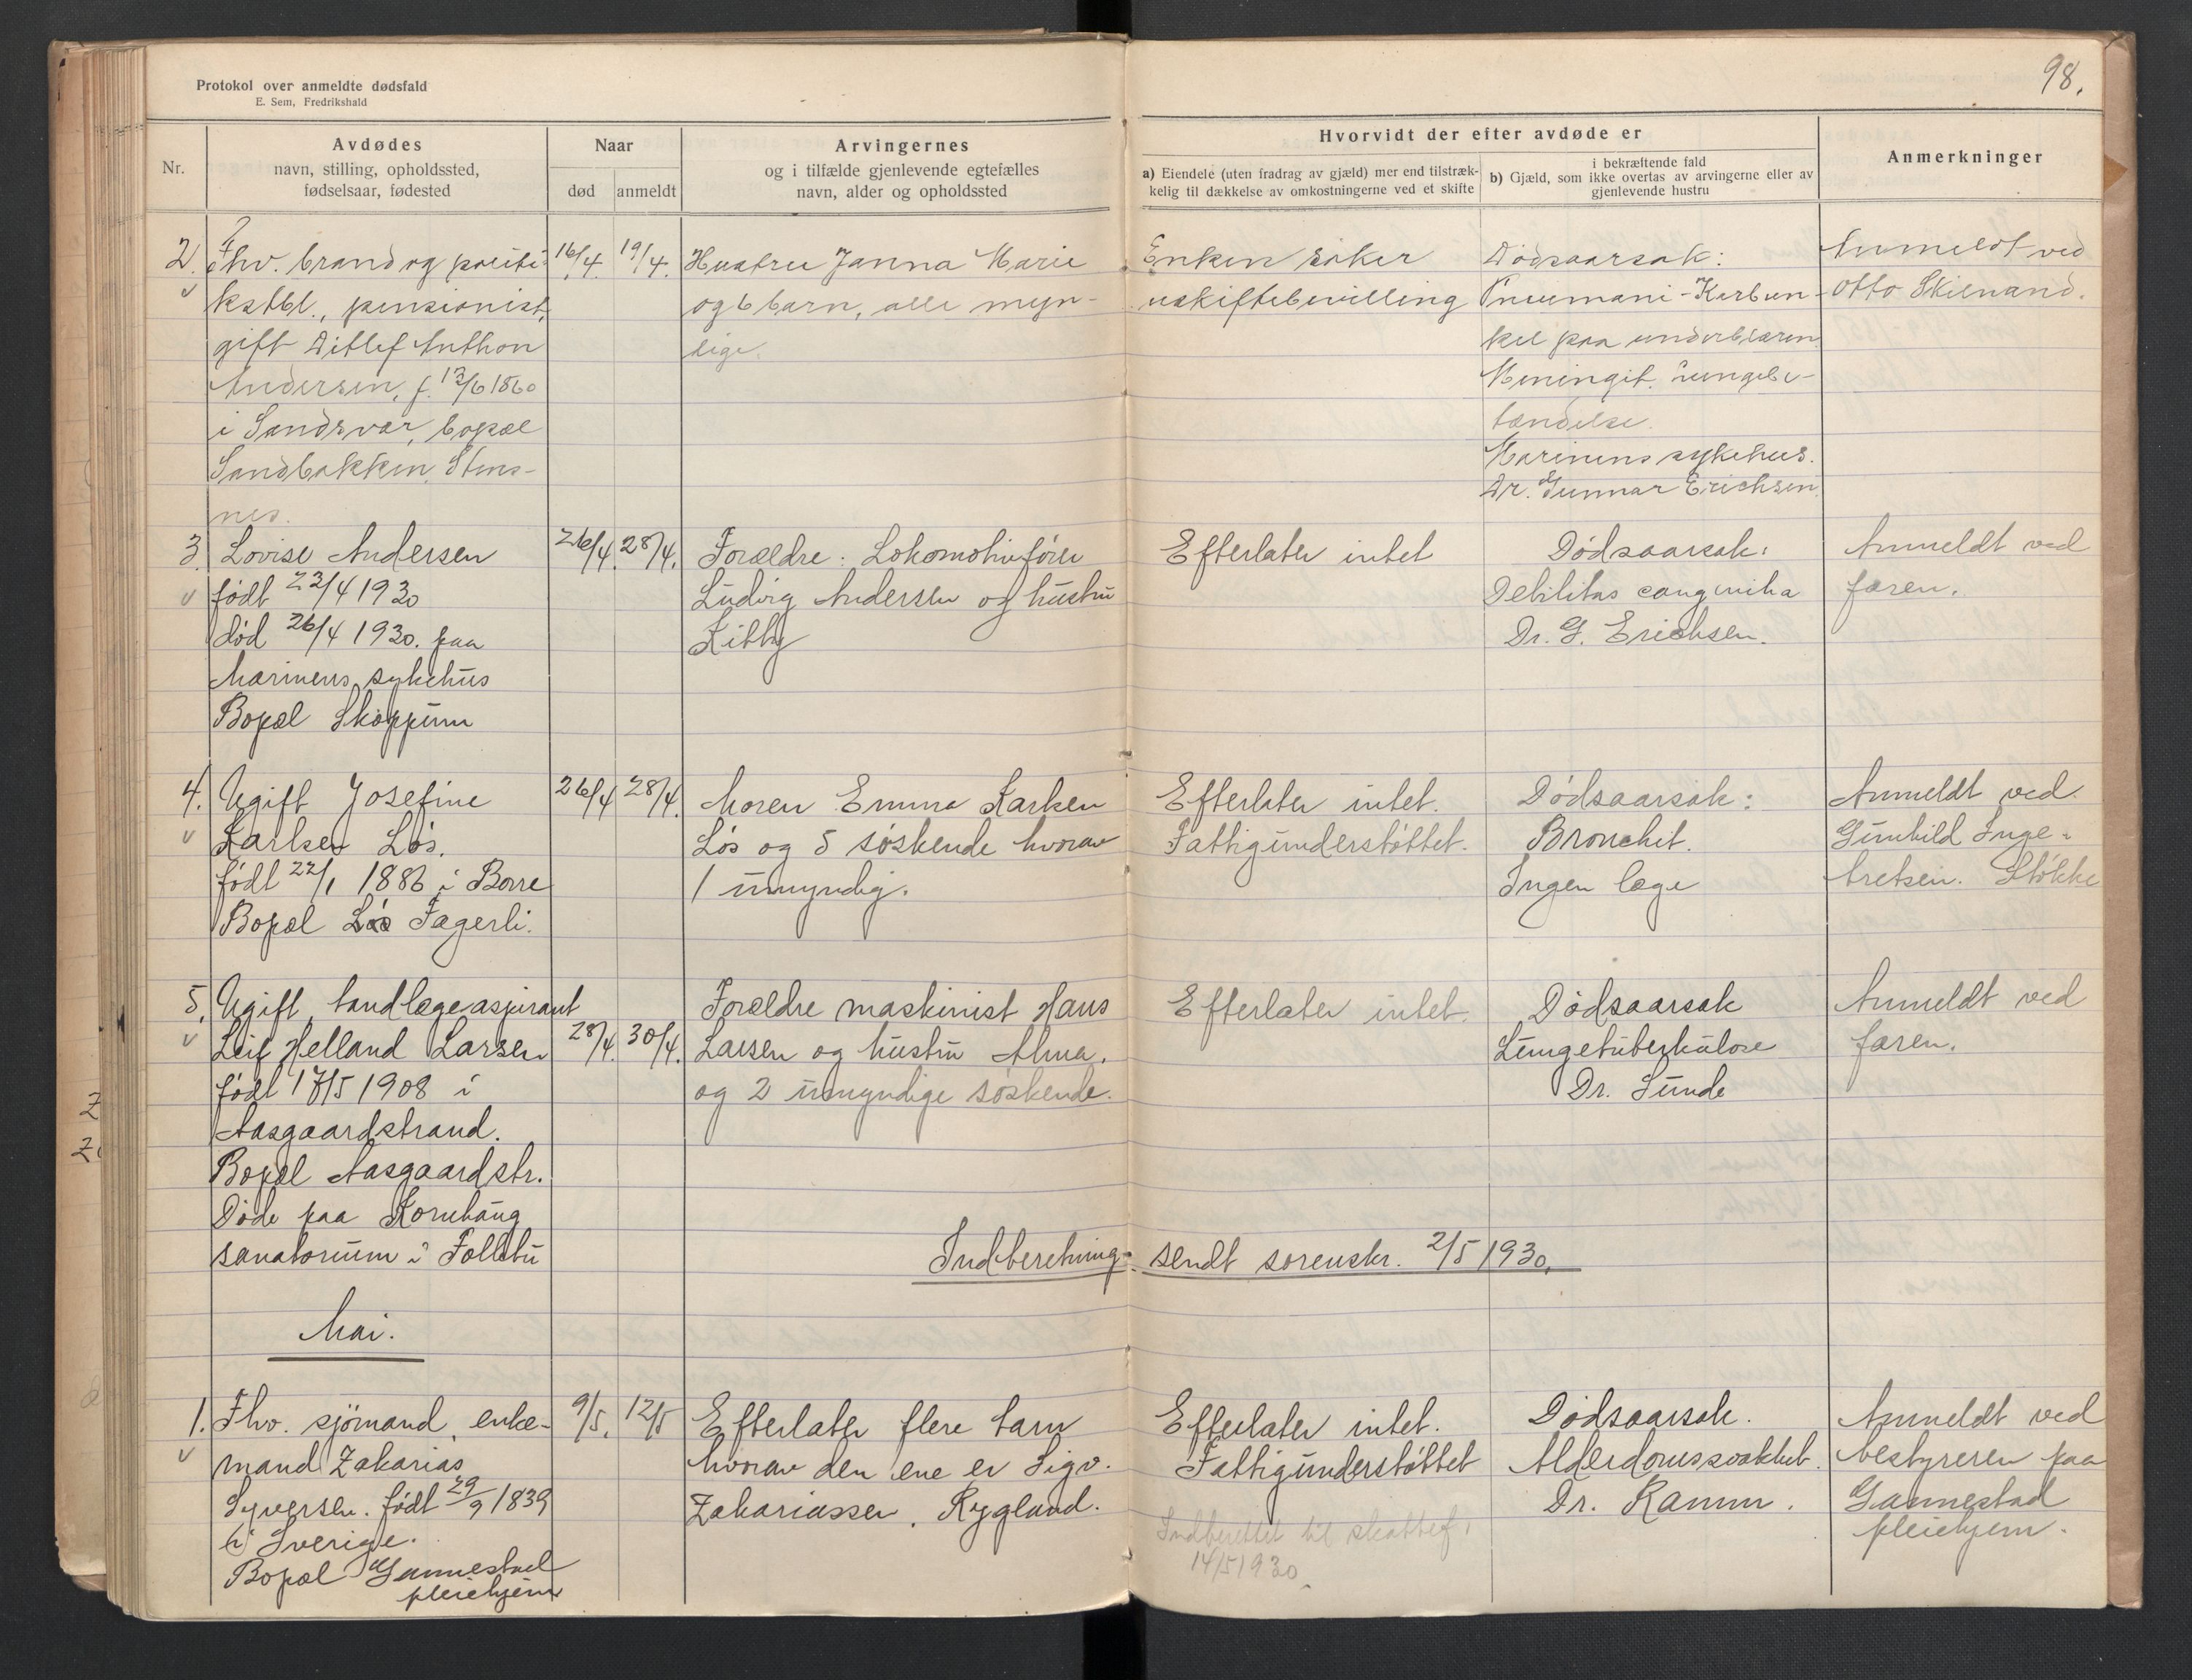 98.
Protokol over anmeldte dødsfald
E. Sem, Fredrikshald
Nr.
Avdødes
navn, stilling, opholdssted,
fødselsaar, fødested
Naar
død
anmeldt
Arvingernes
og i tilfælde gjenlevende egtefælles
navn, alder og opholdssted
Hvorvidt der efter avdøde er
a) Eiendele (uten fradrag av gjæld) mer end tilstræk-
kelig til dækkelse av omkostningerne ved et skifte
i bekræftende fald
b) Gjæld, som ikke overtas av arvingerne eller av
gjenlevende hustru
Anmerkninger
2.
Fhv. brand og politi-
kstbl., pensionist,
gift Ditlef Anthon
Andersen, f. 12/6 1860
i Sandsvær, bopæl
Sandbakken, Stens-
nes.
16/4.
19/4.
Hustru Janna Marie
og 6 barn, alle myn-
dige.
Enken søker
uskiftebevilling
Dødsaarsak:
Pneumoni-Karbun-
kel paa underlæren.
Meningit. Lungebe-
tændelse.
Marinens sykehus.
Dr. Gunnar Erichsen.
Anmeldt ved
Otto Skienand.
3.
Lovise Andersen
født 23/4 1930
død 26/4 1930. paa
Marinens sykehus
Bopæl Skoppum
26/4.
28/4.
Forældre: Lokomotivfører
Ludvig Andersen og hustru
Kitty
Efterlater intet
Dødsaarsak:
Debilitas congenita
Dr. G. Erichsen.
Anmeldt ved
faren.
4.
Ugift Josefine
Karlsen Løs.
født 22/1 1886 i Borre
Bopæl Løs Fagerli.
26/4
28/4.
Moren Emma Karlsen
Løs og 5 søskende hvorav
1 umyndig.
Efterlater intet.
Fattigunderstøttet.
Dødsaarsak:
Bronchit.
Ingen læge
Anmeldt ved
Gunhild Inge-
bretsen. Stokke
5.
Ugift tandlægeaspirant
Leif Helland Larsen
født 17/5 1908 i
Aasgaardstrand.
Bopæl Aasgaardstr.
Døde paa Kornhaug
sanatorium i Follebu
28/4.
30/4.
Forældre maskinist Hans
Larsen og hustru Alma.
og 2 umyndige søskende.
Efterlater intet.
Dødsaarsak
Lungetuberkulose
Dr. Sunde
Anmeldt ved
faren.
Indberetning sendt sorenskr. 2/5 1930.
Mai.
1.
Fhv. sjømand, enke-
mand Zakarias
Syversen. født 29/9 1839
i Sverige.
Bopæl Gannestad
pleiehjem
9/5.
12/5
Efterlater flere barn
hvorav den ene er Sigv.
Zakariassen, Rygland.
Efterlater intet.
Fattigunderstøttet
Indberettet til skattef.
14/5 1930.
Dødsaarsak.
Alderdomssvakhet.
Dr. Ramm.
Anmeldt ved
bestyreren paa
Gannestad
pleiehjem.